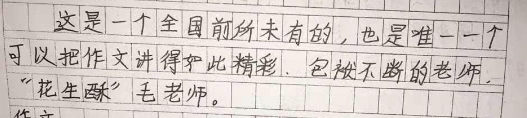 这是一个全国前所未有的，也是唯一一个
可以把作文讲得如此精彩．包袱不断的老师．
“花生酥”毛老师。